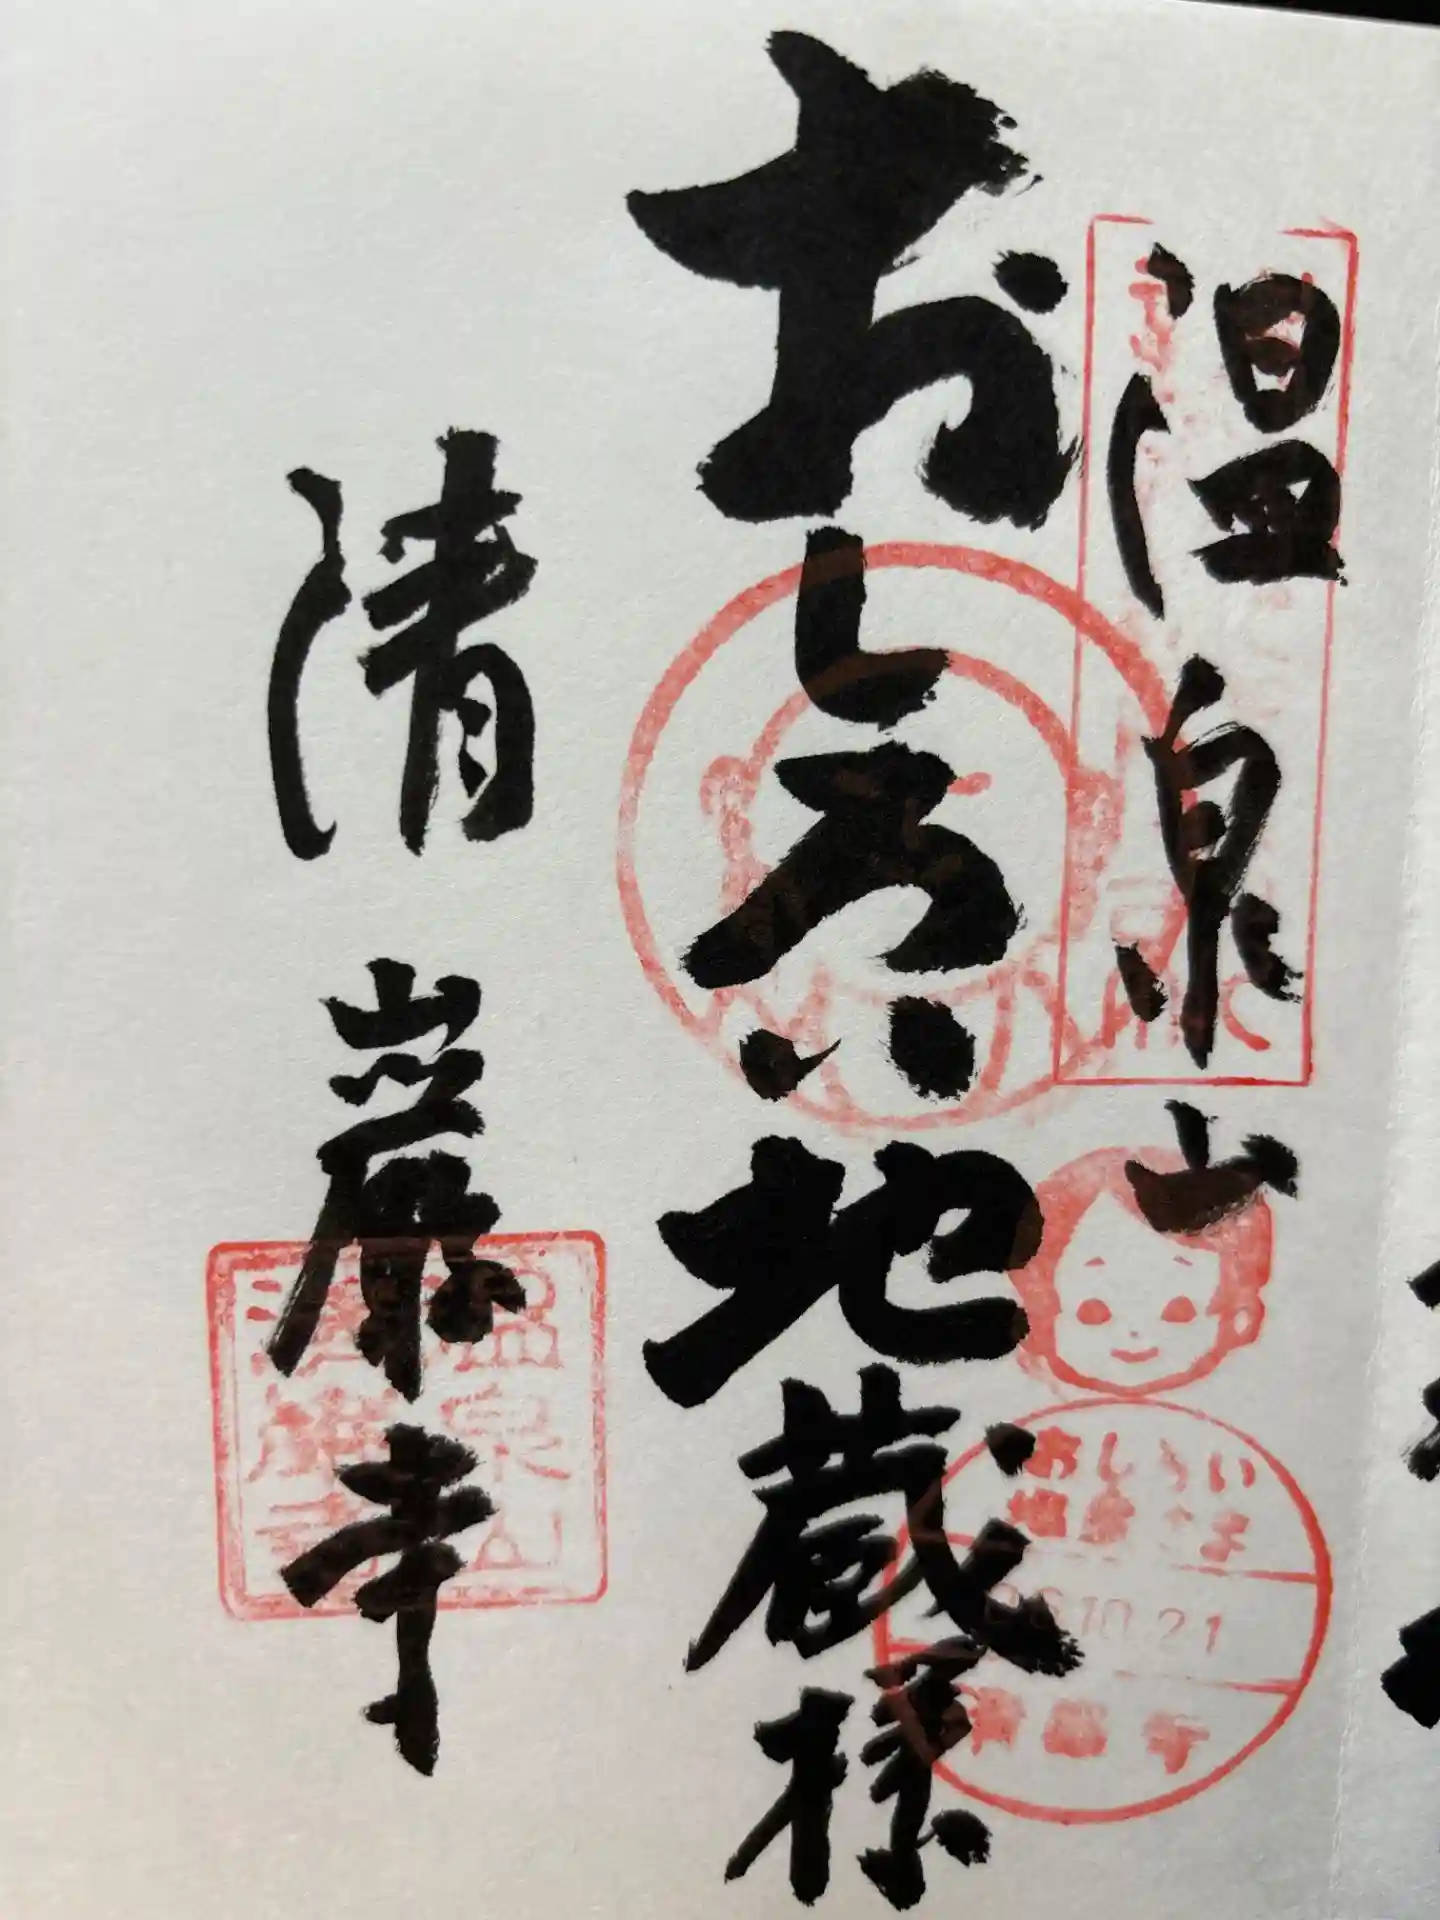 温泉山
おしろい地蔵様
清岩寺
温泉山
清巌寺
おしろい
地蔵さま
10.21
清巌寺